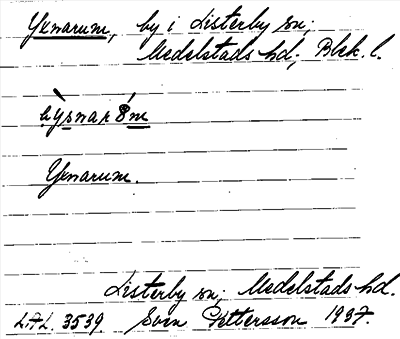 Yxnarum, by i Listerby sn;
Medelstads hd; Blek. l.
Yxnarum.
Listerby sn; Medelstads hd.
L.A.L. 3539. Sven Pettersson 1937.